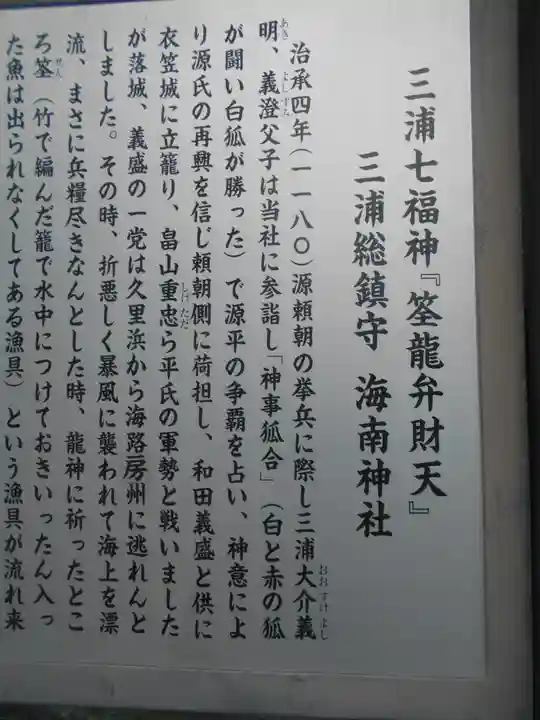 三浦七福神『筌龍弁財天』
三浦総鎮守 海南神社
治承四年(一一八〇)源頼朝の挙兵に際し三浦大介義
明、義澄父子は当社に参詣し「神事狐合」(白と赤の狐
が闘い白狐が勝った)で源平の争覇を占い、神意によ
り源氏の再興を信じ頼朝側に荷担し、和田義盛と供に
衣笠城に立籠り、畠山重忠ら平氏の軍勢と戦いました
が落城、義盛の一党は久里浜から海路房州に逃れんと
しました。その時、折悪しく暴風に襲われて海上を漂
流、まさに兵糧尽きなんとした時、龍神に祈ったとこ
ろ筌(竹で編んだ籠で水中につけておきいったん入っ
た魚は出られなくしてある漁具)という漁具が流れ来